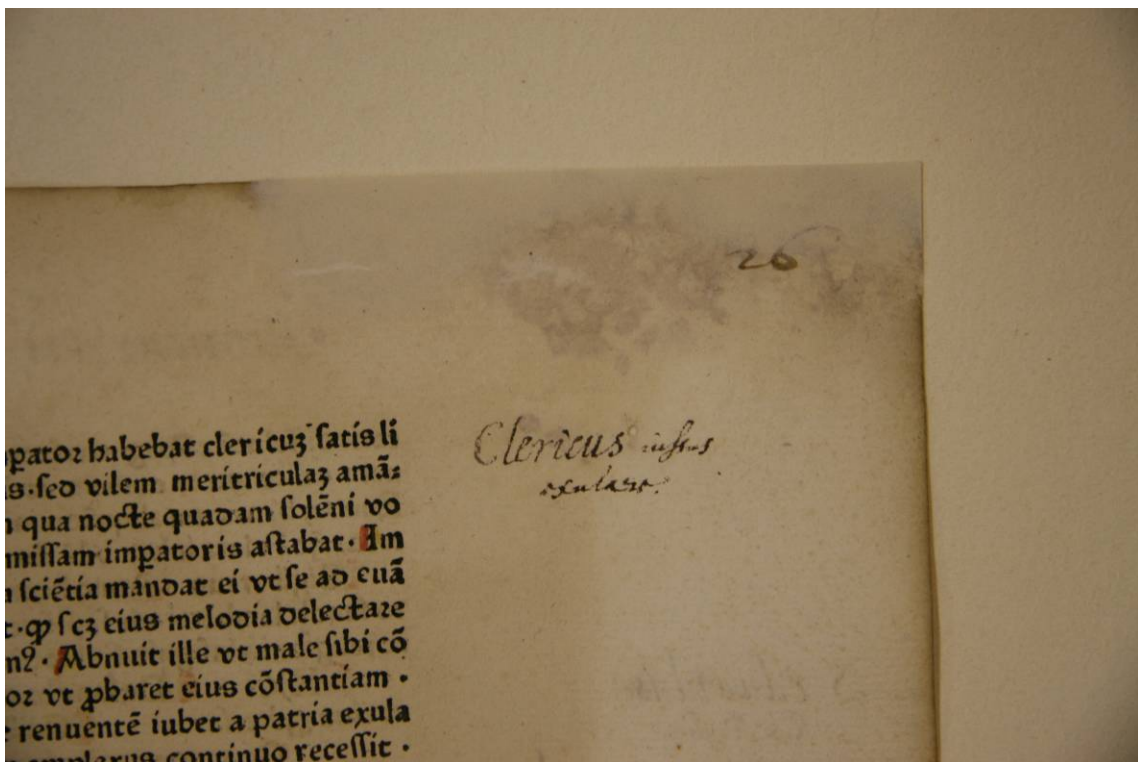 26
Clericus iussus
exulare.
p̲ator habebat clericuʒ satis li
s·sed vilem meritriculaʒ amā⸗
qua nocte quadam solēni vo
missam imp̲atoris astabat· Im
sciētia mandat ei vt se ad euā
ꝙ scʒ eius melodia delectare
Abnuit ille vt male sibi cō
oꝛ vt ꝓbaret eius cōstantiam ·
renuentē iubet a patria exula
continuo recessit ·